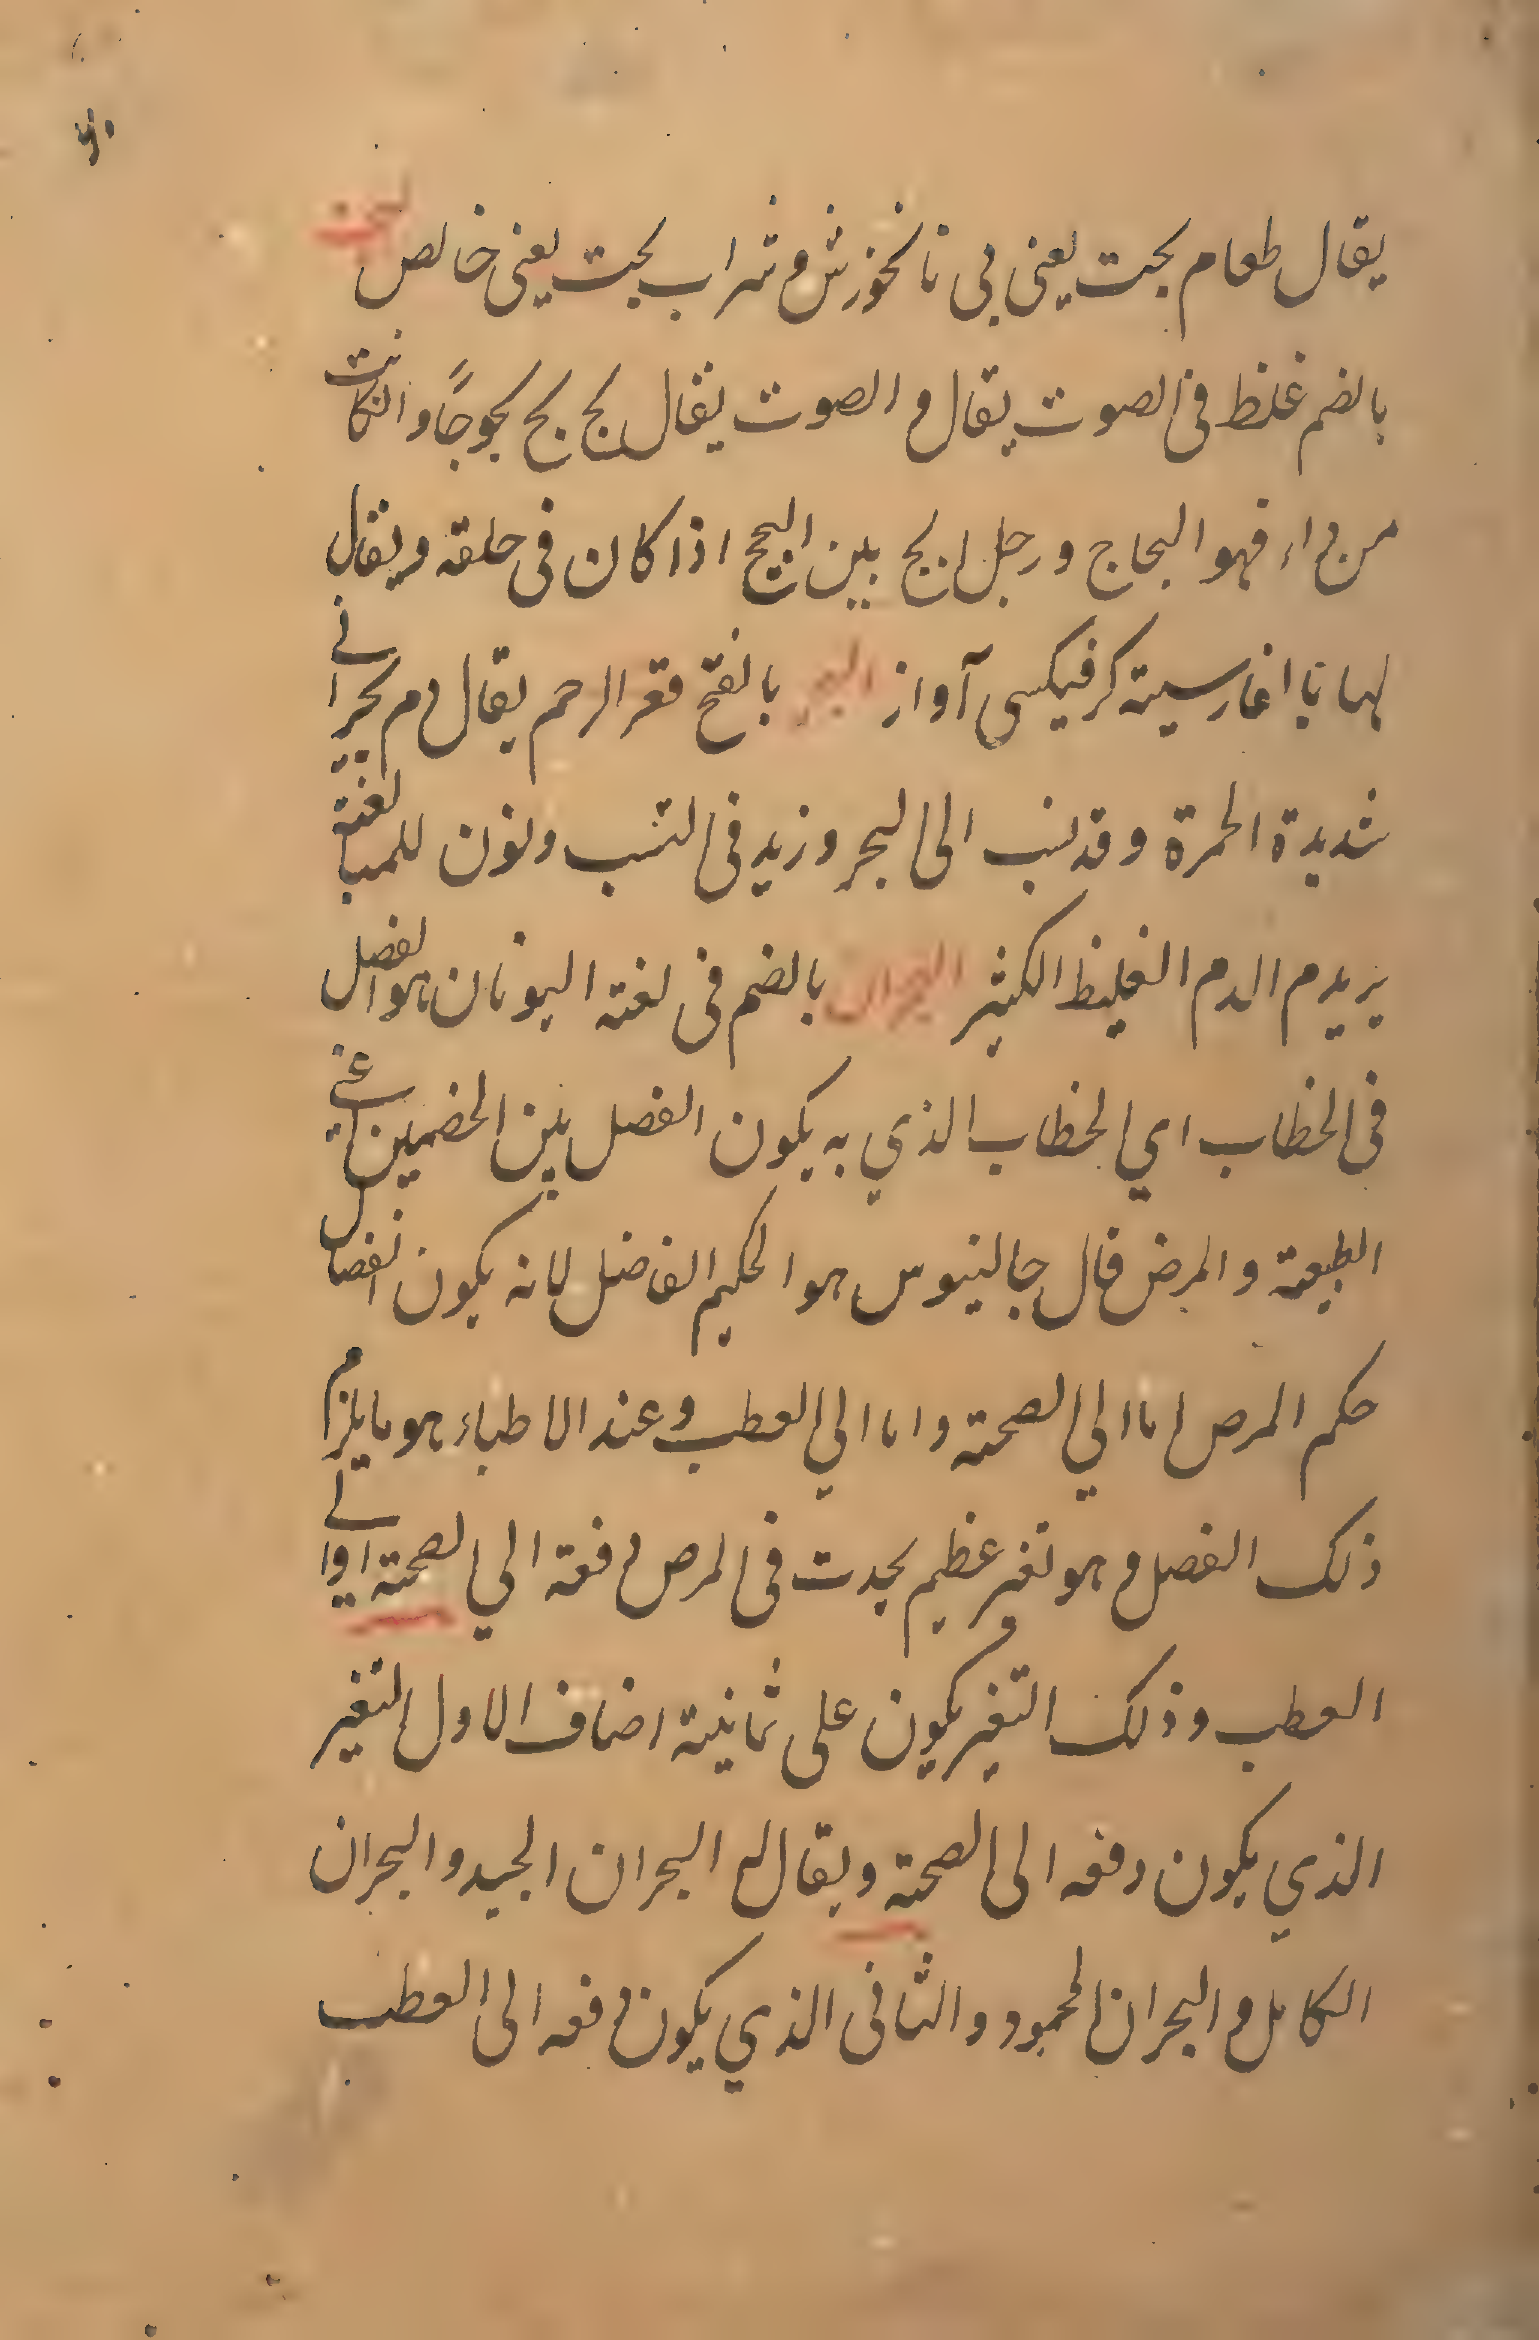 يقال طعام بحت يعنى بى نانخورش و شراب بحت يعنى خالص
بالضم غلظ فى الصوت يقال و الصوت يقال بح بح بحوجًا و ان كانت
من داء فهو البحاج و رجل ابح بين البحح اذا كان فى حلقه و يقال
لها با الفارسيته كرفيكى آواز البحر بالفتح قعر الرحم يقال دم بحرانى
شديدة الحمرة و قد نسب الى البحر و زيد فى النسب و نون للمبالغة
يريدم الدم الغليظ الكثير البحران بالضم فى لغته اليونان هو الفصل
فى الخطاب اي الخطاب الذي به يكون الفصل بين الخصمين يعني
الطبيعة و المرض قال جالينوس هو الحكيم الفاضل لانه يكون انفصال
حكم المرض اما الي الصحته و اما الي العطب و عند الاطباء هو ما يلزم
ذلك الفصل و هو تغير عظيم يحدث فى المرض دفعة الي الصحته او الى
العطب و ذلك التغير يكون على ثمانيته اضاف الاول التغير
الذي يكون دفعه الى الصحته و يقال له البحران الجيد و البحران
الكامل و البحران المحمود و الثانى الذي يكون دفعه الى العطب